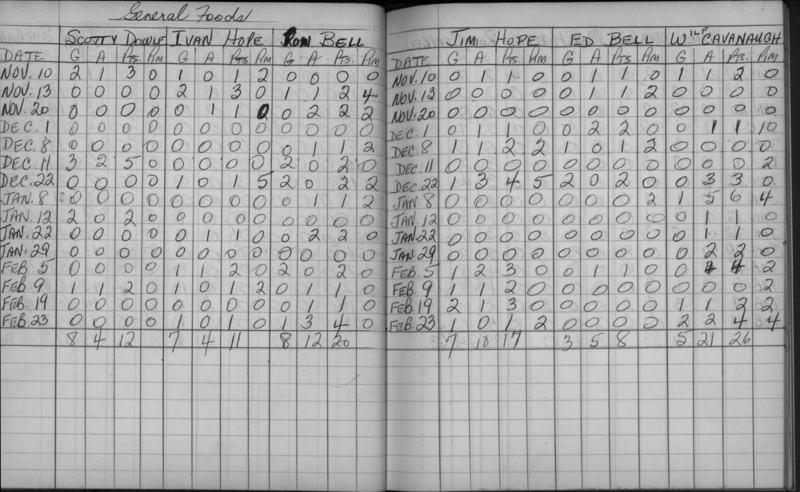 General Foods
SCOTTY DOWLE IVAN HOPE RON BELL
DATE G A Pts. Pim G A Pts Pim G A Pts. Pim
NOV. 10 2 1 3 0 1 0 1 2 0 0 0 0
NOV. 13 0 0 0 0 2 1 3 0 1 1 2 4
NOV. 20 0 0 0 0 0 1 1 0 0 2 2 2
DEC. 1 0 0 0 0 0 0 0 0 0 0 0 0
DEC. 8 0 0 0 0 0 0 0 0 0 1 1 2
DEC. 11 3 2 5 0 0 0 0 0 2 0 2 0
DEC. 22 0 0 0 0 1 0 1 5 2 0 2 2
JAN. 8 0 0 0 0 0 0 0 0 0 1 1 2
JAN. 12 2 0 2 0 0 0 0 0 0 0 0 0
JAN. 22 0 0 0 0 0 1 1 0 0 2 2 0
JAN. 29 0 0 0 0 0 0 0 0 0 0 0 0
FEB. 5 0 0 0 0 1 1 2 0 2 0 2 0
FEB. 9 1 1 2 0 1 0 1 2 0 1 1 0
FEB. 19 0 0 0 0 0 0 0 0 0 1 1 0
FEB. 23 0 0 0 0 1 0 1 0 1 3 4 0
8 4 12 7 4 11 8 12 20
JIM HOPE ED BELL WILF CAVANAUGH
DATE G A Pts Pim G A Pts Pim G A Pts. Pim
NOV. 10 0 1 1 0 0 1 1 0 1 1 2 0
NOV. 13 0 0 0 0 0 1 1 2 0 0 0 0
NOV. 20 0 0 0 0 0 0 0 0 0 0 0 0
DEC. 1 0 1 1 0 0 2 2 0 0 1 1 10
DEC. 8 1 1 2 2 1 0 1 2 0 0 0 0
DEC. 11 0 0 0 0 0 0 0 0 0 0 0 2
DEC. 22 1 3 4 5 2 0 2 0 0 3 3 0
JAN. 8 0 0 0 0 0 0 0 2 1 5 6 4
JAN. 12 0 0 0 0 0 0 0 0 0 1 1 0
JAN. 22 0 0 0 0 0 0 0 0 0 1 1 0
JAN. 29 0 0 0 0 0 0 0 0 0 2 2 0
FEB. 5 1 2 3 0 0 1 1 0 0 4 4 2
FEB. 9 1 1 2 0 0 0 0 0 0 0 0 2
FEB. 19 2 1 3 0 0 0 0 0 1 1 2 2
FEB. 23 1 0 1 2 0 0 0 0 2 2 4 4
7 10 17 3 5 8 5 21 26